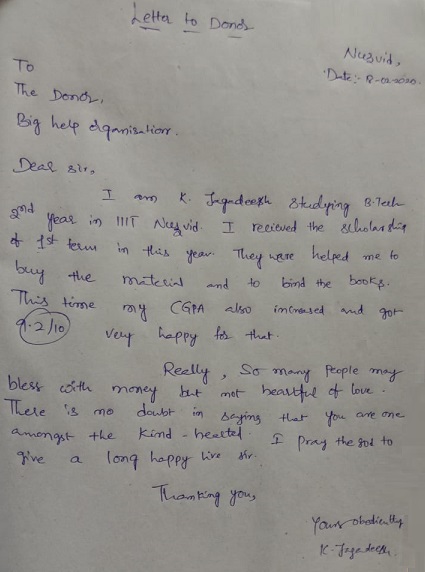 Letter to Donor
Nuzvid,
Date:- 8-02-2020.
To
The Donor,
Big help organisation.
Dear sir,
I am K. Jagadeesh studying B.Tech
2nd year in IIIT Nuzvid. I recieved the scholarship
of 1st term in this year. They were helped me to
buy the material and to bind the books.
This time my CGPA also increased and got
9.2/10 very happy for that.
Really, So many people may
bless with money but not heartful of love.
There is no doubt in saying that you are one
amongst the kind-hearted. I pray the god to
give a long happy live sir.
Thanking you,
Yours obediently
K. Jagadeesh.